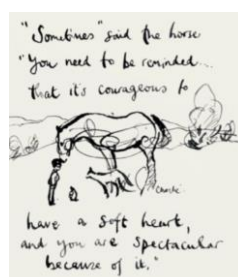 "Sometimes" said the horse
"You need to be reminded...
that it's courageous to
Charlie.
have a soft heart,
and you are spectacular
because of it."